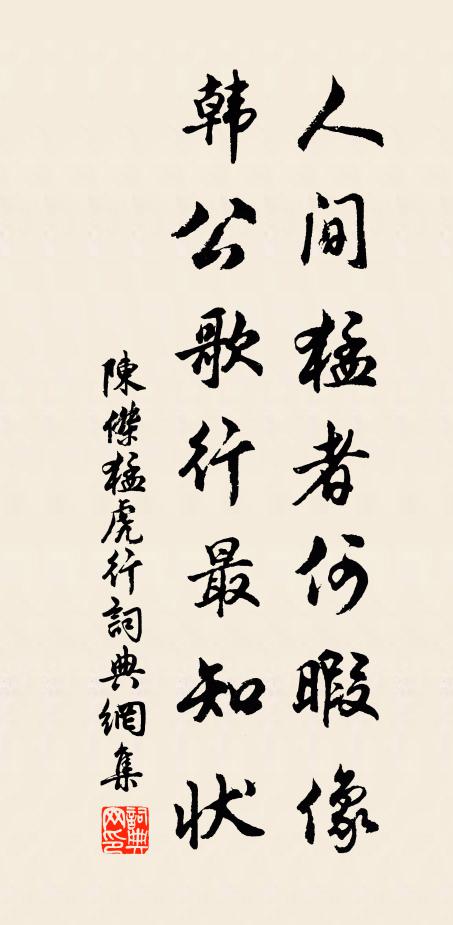 人间猛者何暇像
韩公歌行最知状
陳傑猛虎行詞典網集
詞典網印